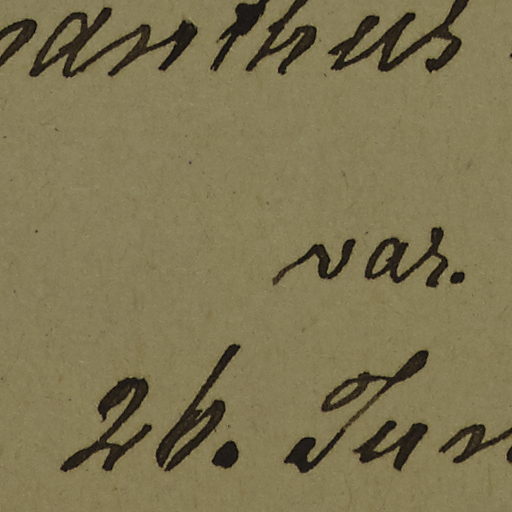 anthus
var.
26. Jun